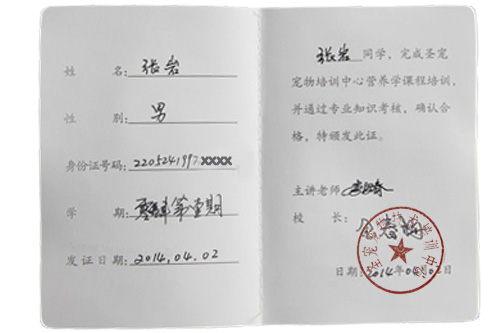 姓 名: 张岩
性 别: 男
身份证号码: 2205241997.XXXX
学 期: 第 期
发证日期: 2014.04.02
张岩 同学, 完成圣宠
宠物培训中心营养学课程培训,
并通过专业知识考核, 确认合
格, 特颁发此证。
主讲老师
校 长:
日期: 2014年04月02日